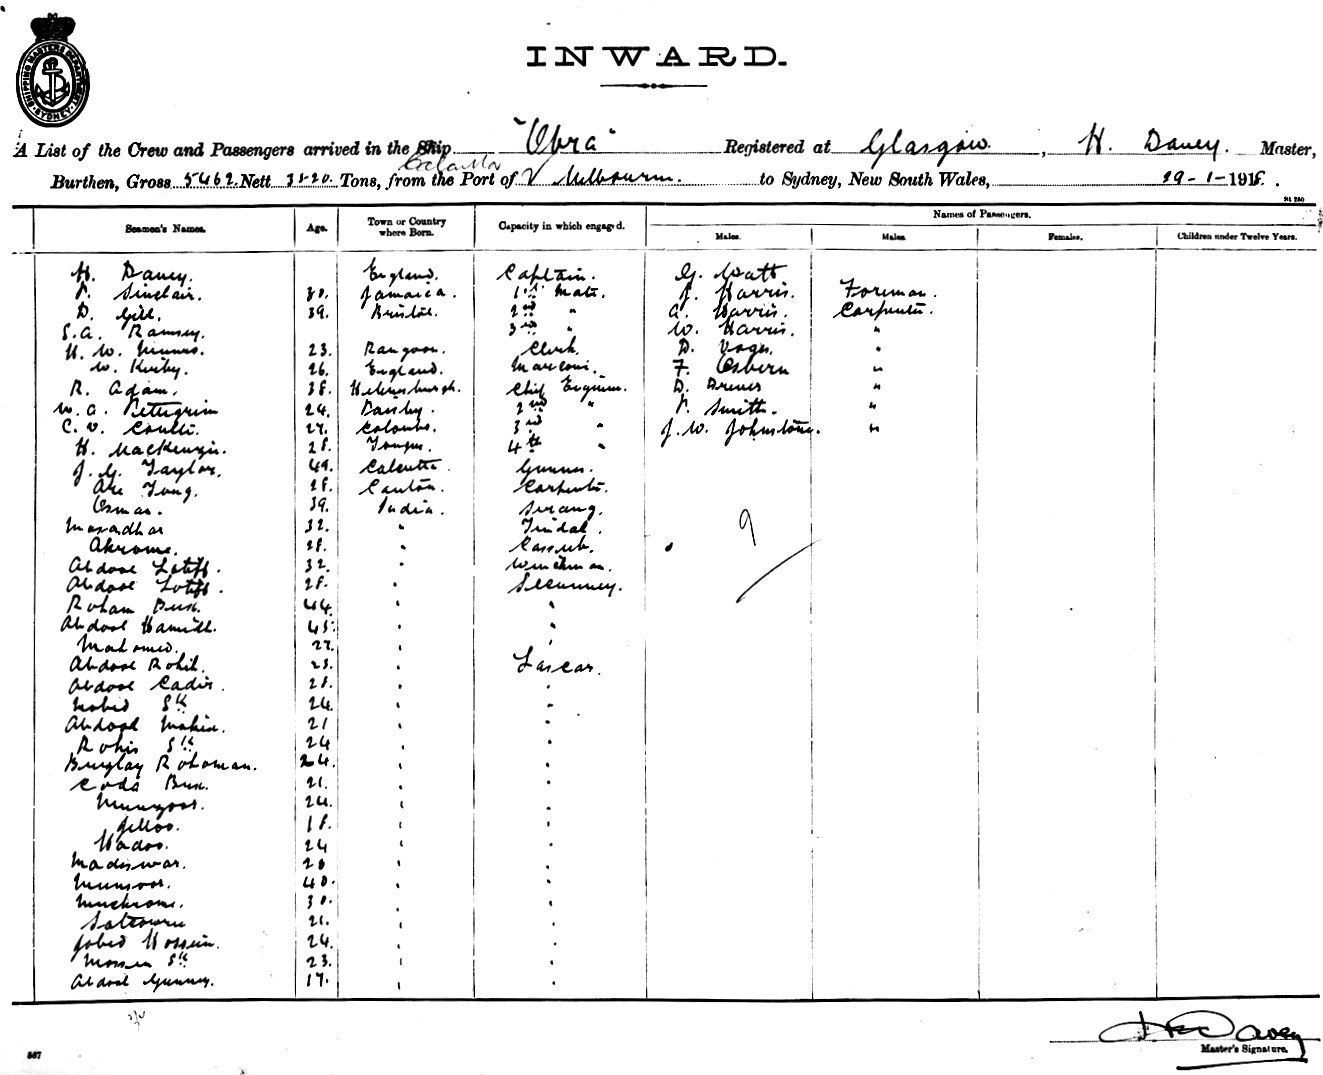 SHIPPING MASTERS DEPARTMENT SYDNEY
INWARD.
A List of the Crew and Passengers arrived in the Ship "Obra" Registered at Glasgow, H. Davey. Master,
Calcutta
Burthen, Gross 5462. Nett 3520. Tons, from the Port of Melbourne. to Sydney, New South Wales, 29-1-191
Seamen's Names. Age. Town or Country where Born. Capacity in which engaged. Names of Passengers.
Males. Males. Females. Children under Twelve Years.
H. Davey. England. Captain. G. Watt
P. Sinclair. 30. Jamaica. 1st Mate. J. Harris. Foreman.
D. Gill. 39. Bristol. 2nd " A. Harris. Carpenter.
S.A. Ramsey. 3rd " W. Harris. "
H. W. 23. Rangoon. Clerk. D. "
W. Kirby. 26. England. Marconi. F. Osbern "
R. Adam. 38. Helensburgh. Chief Engineer. D. "
W. A. Pettigrew 24. Paisley. 2nd " P. Smith. "
C. V. 27. Colombo. 3rd " J. W. Johnstone. "
H. MacKenzie. 28. Tongue. 4th "
J. G. Taylor. 49. Calcutta. Gunner.
Ah Tong. 28. Canton. Carpenter.
Osman. 39. India. Serang.
32. " Tindal.
Akrome. 28. " Cassab.
Abdool Lotiff. 32. " Winchman.
Abdool Lotiff. 28. " Secunney.
Roham Bux. 44. " "
Abdool Hamid. 45. " "
Mahomed. 27. " "
Abdool Rohit. 23. " Lascar.
Abdool Cadir. 28. " "
Nobid Sk 24. " "
Abdool Makim. 21 " "
Rohis Sk 24 " "
Rohoman. 24. " "
Coda Bux. 21. " "
Munsoor. 24. " "
18. " "
24 " "
20 " "
Munsoor. 40. " "
30. " "
21. " "
Jobed Hossein. 24. " "
Sk 23. " "
Abdool Gunney. 17. " "
9
H Davey
Master's Signature.
567